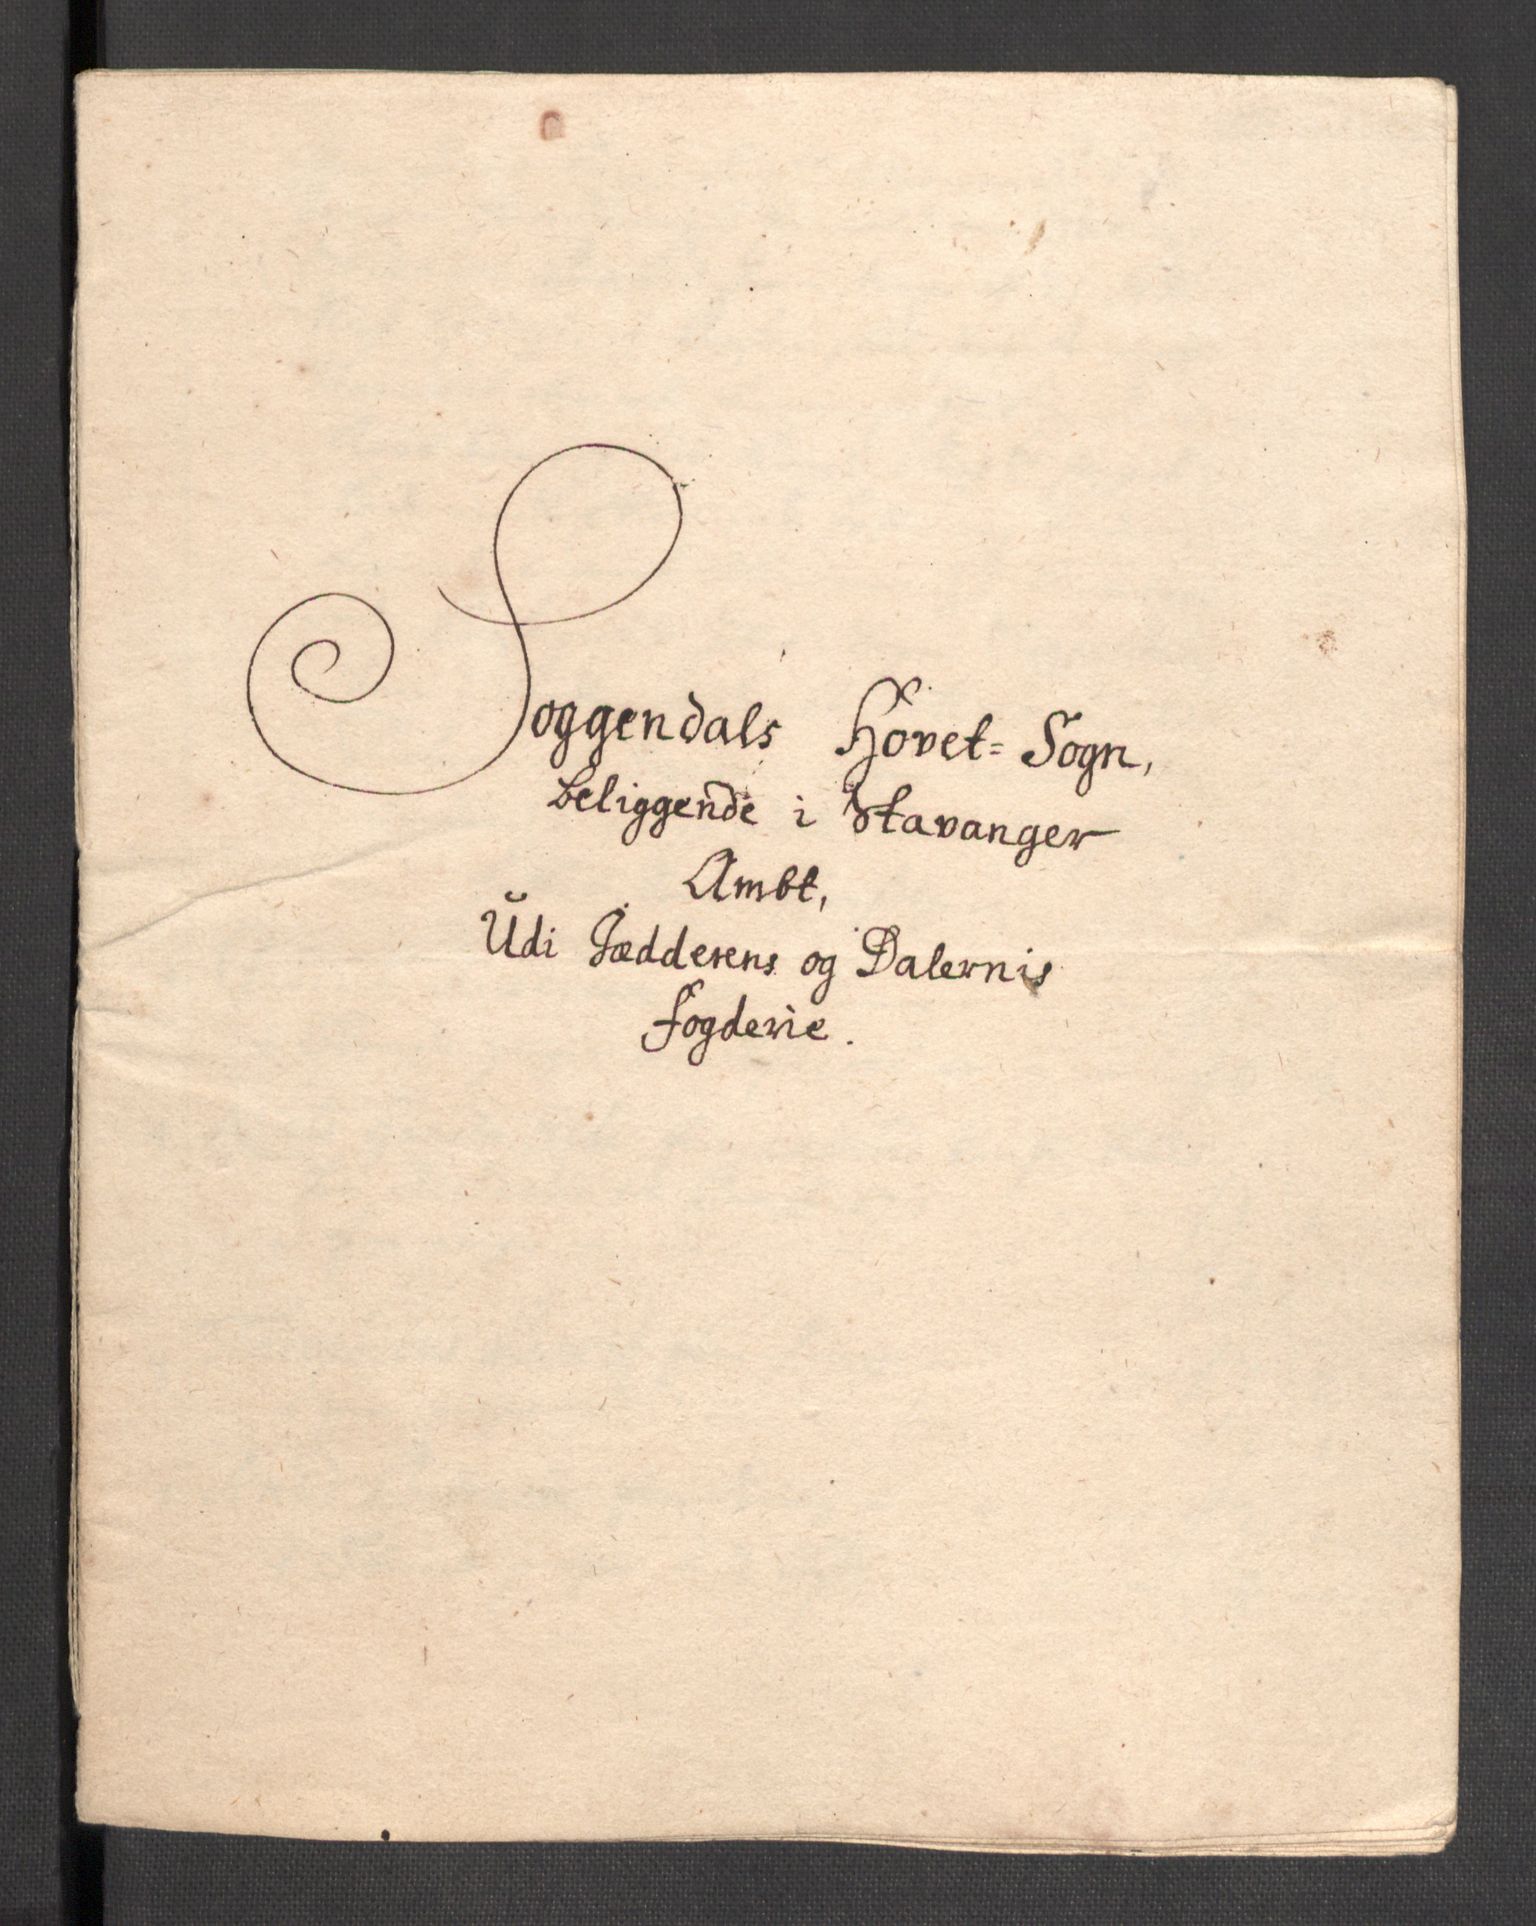 Soggendals Hovet= Sogn,
beliggende i Stavanger
Ambt,
Udi Jædderens og Dalernis
fogderie.